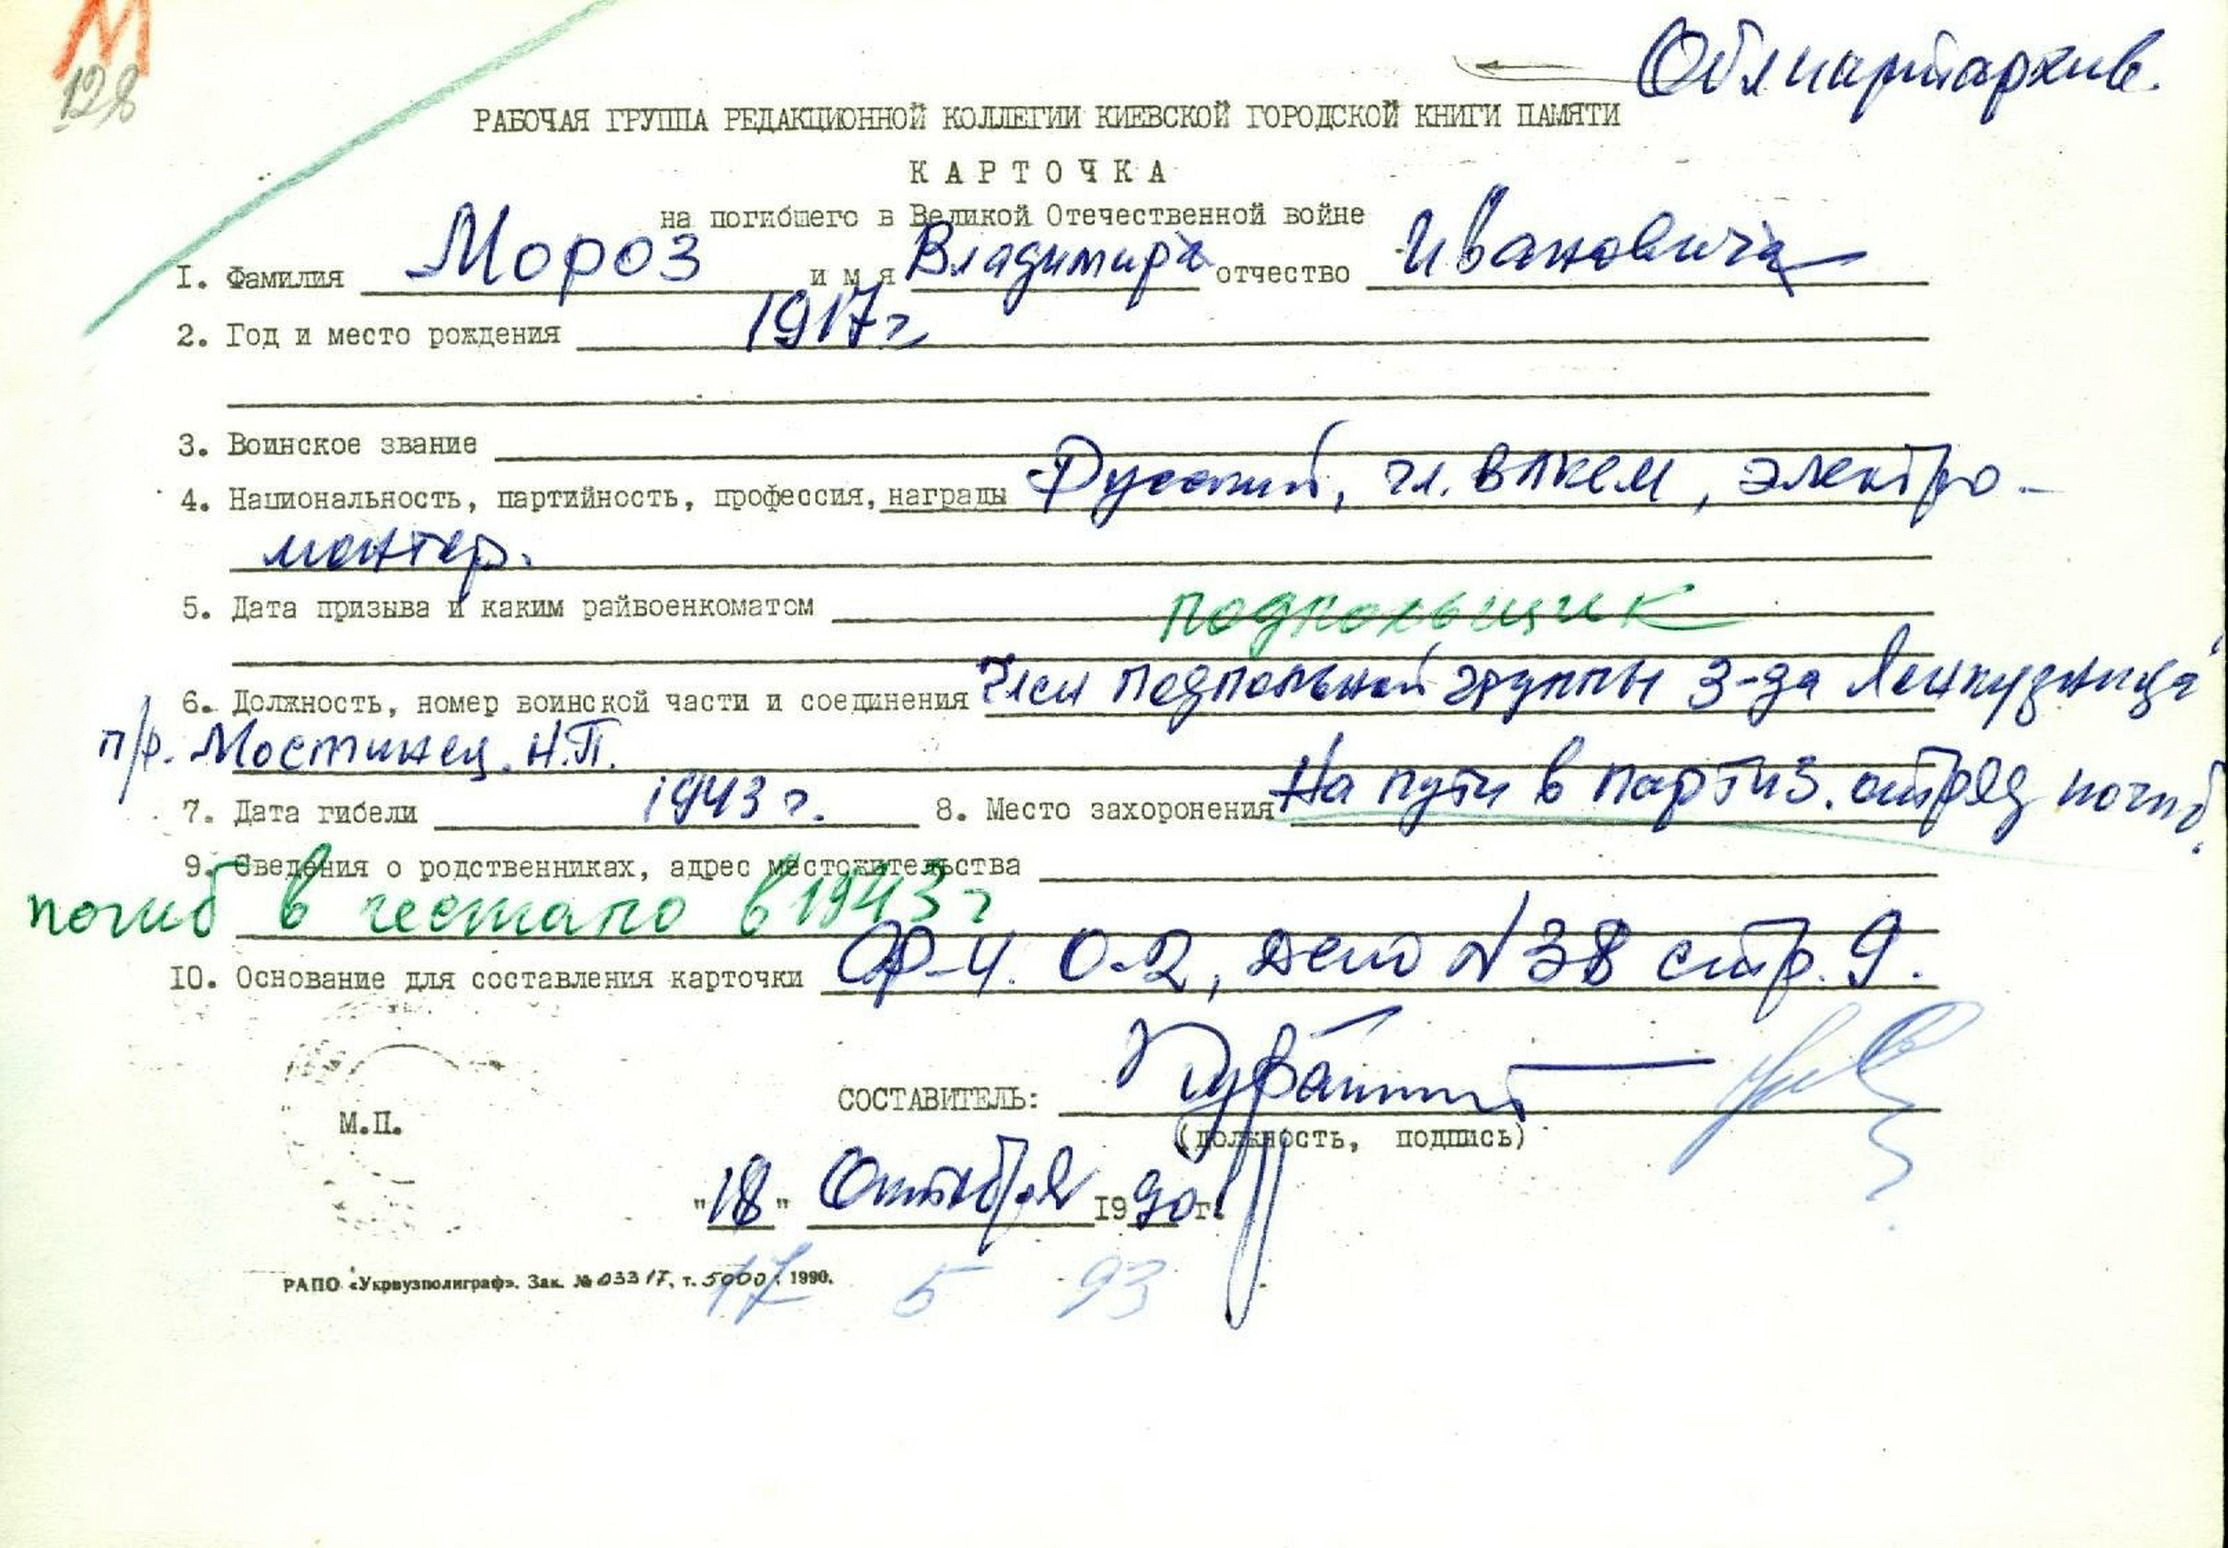 М
128
Облпартархив.
РАБОЧАЯ ГРУППА РЕДАКЦИОННОЙ КОЛЛЕГИИ КИЕВСКОЙ ГОРОДСКОЙ КНИГИ ПАМЯТИ
КАРТОЧКА
на погибшего в Великой Отечественной войне
1. Фамилия Мороз имя Владимира отчество Ивановича
2. Год и место рождения 1917 г.
3. Воинское звание
4. Национальность, партийность, профессия, награды Русский, чл. ВЛКСМ, электро-
монтер.
5. Дата призыва и каким райвоенкоматом подпольщик
6. Должность, номер воинской части и соединения Член подпольной группы з-да Ленкузница"
п/р. Мостинец. Н.П.
7. Дата гибели 1943 г. 8. Место захоронения На пути в партиз. отряд погиб.
9. Сведения о родственниках, адрес местожительства
погиб в гестапо в 1943 г
10. Основание для составления карточки Ф-4. О-2, дело N 38 стр. 9.
СОСТАВИТЕЛЬ:
М.П.
(должность, подпись)
"18" Октября 1990 г.
РАПО «Укрвузполиграф». Зак. № 03317, т. 5000. 1990.
17 5 93